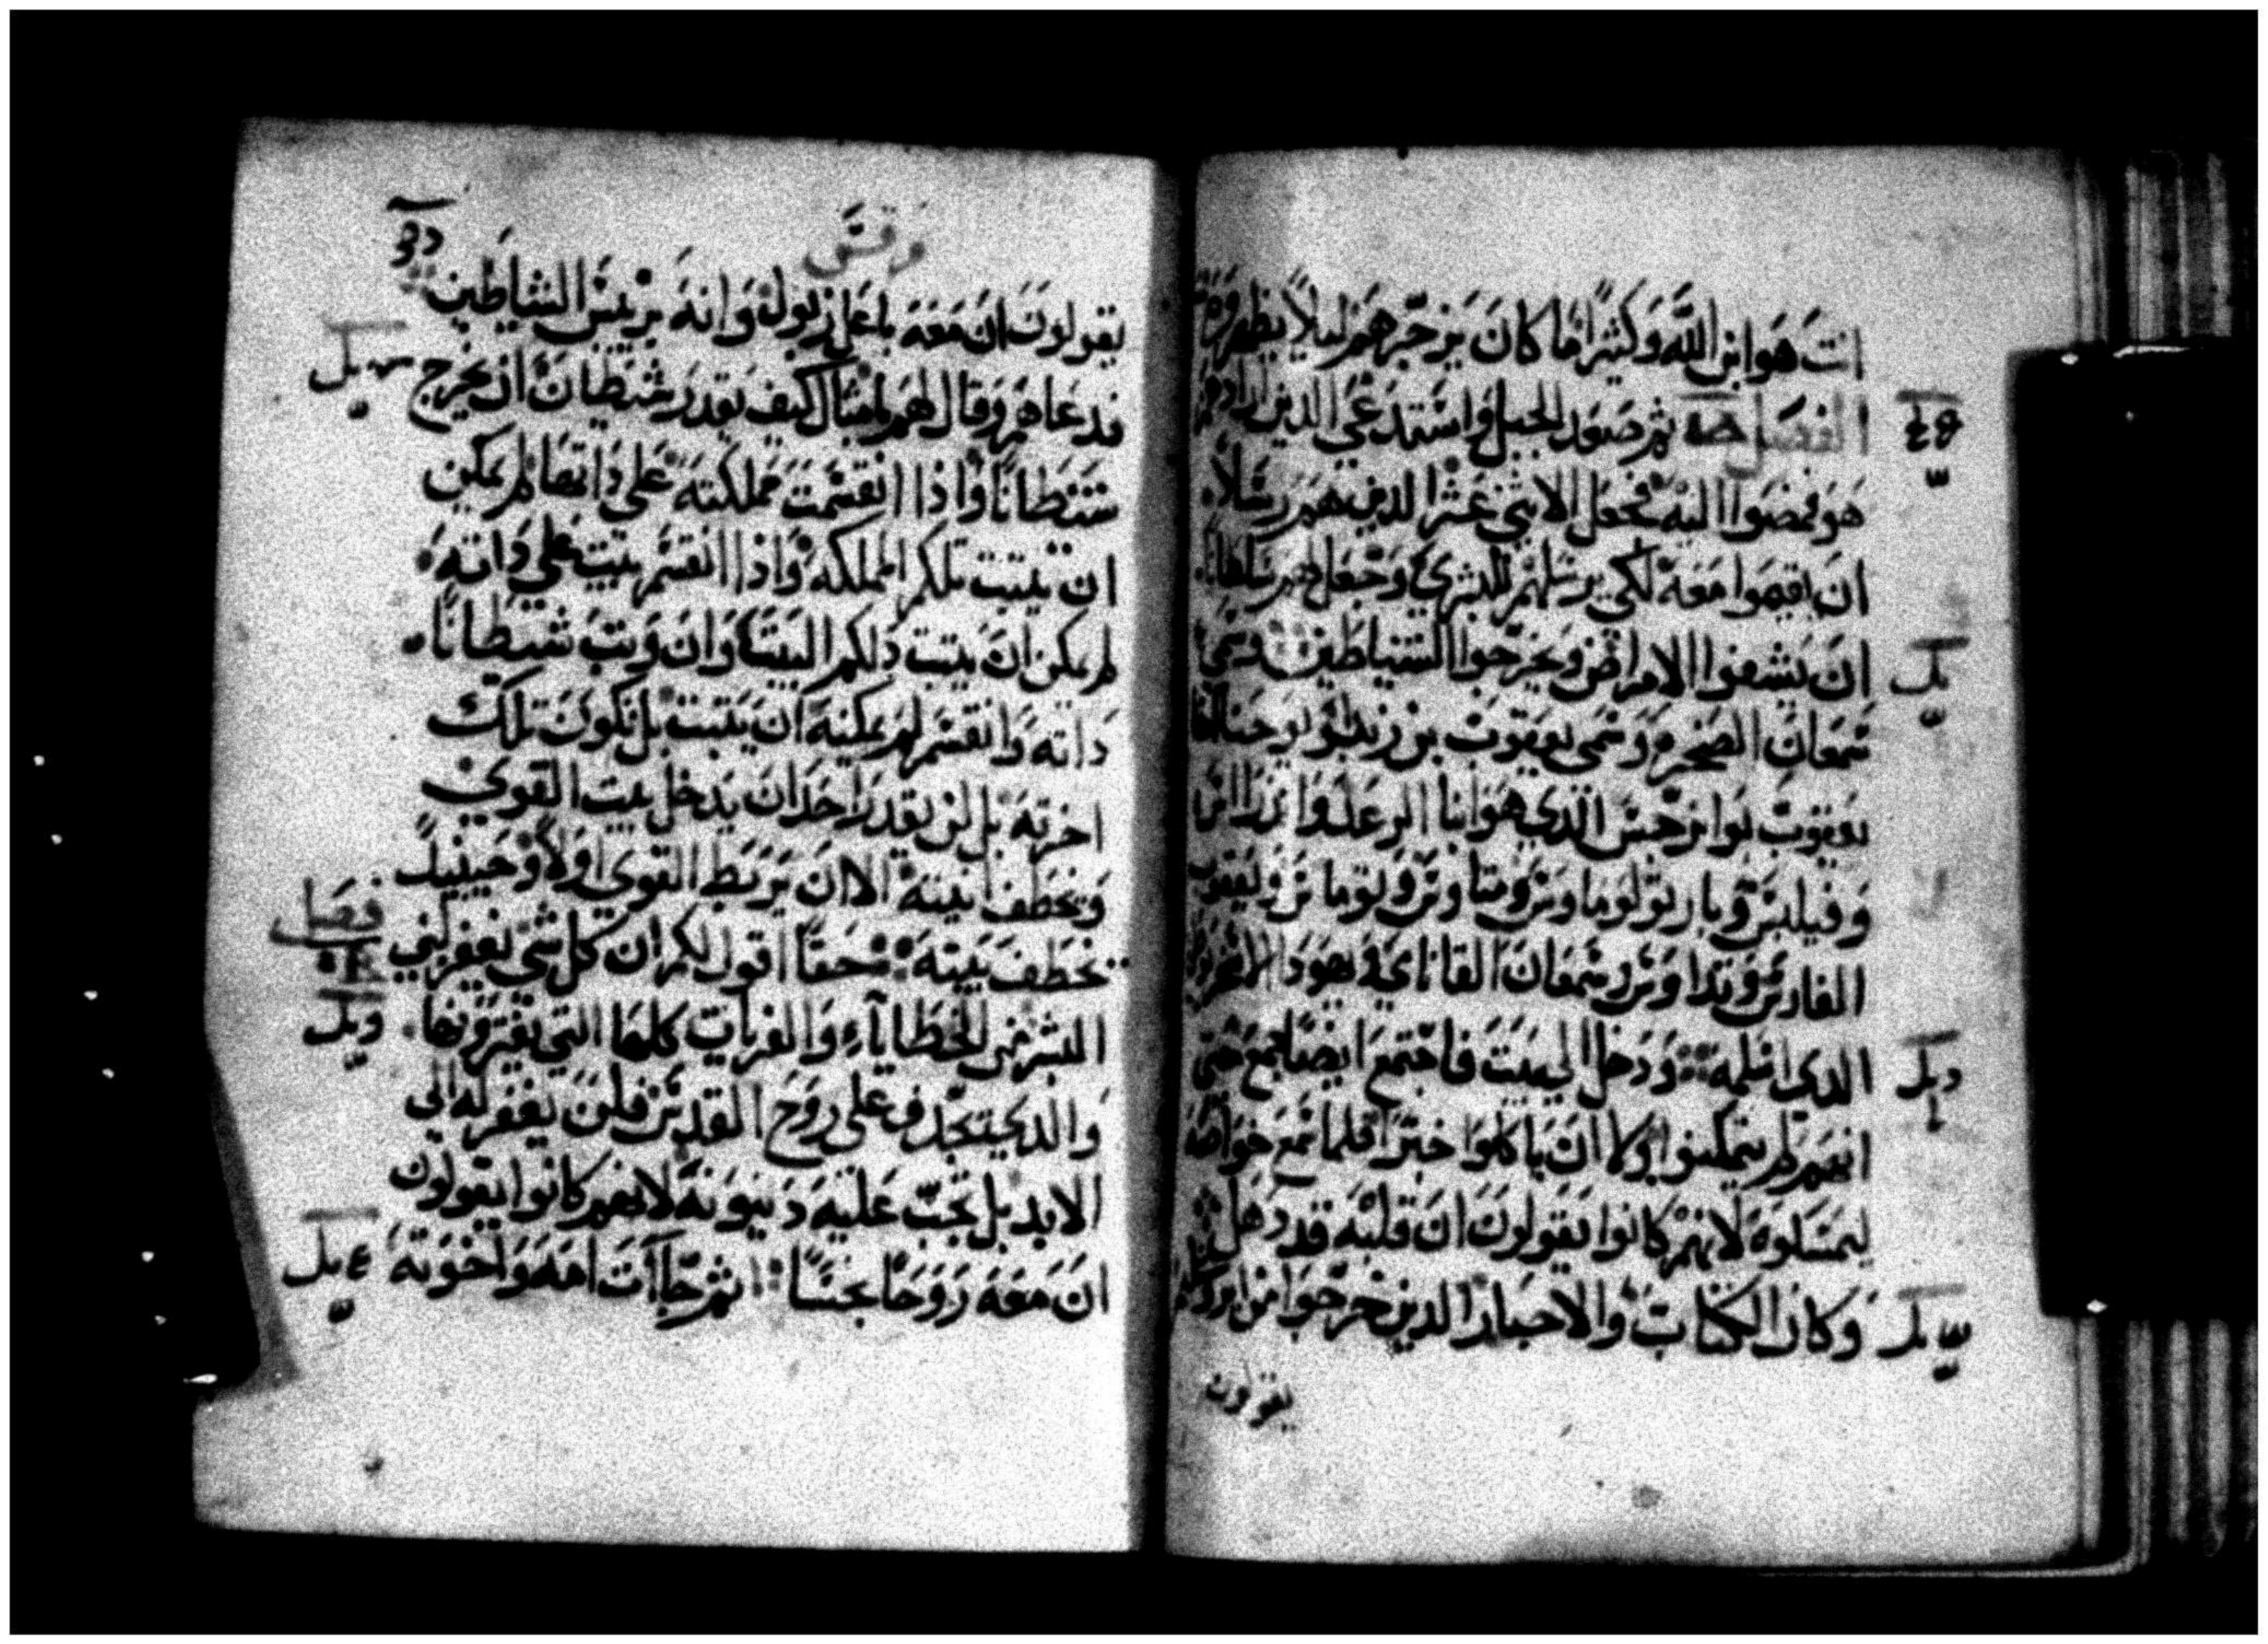 انت هو ابن الله وكثيرًا ما كان يزجرهم ليلًا يظهروه
الفصل ثم صعد الجبل واستدعي الدين ارادهم
هو فمضوا اليه فجعل الاثني عشر الدين هم رسلًا
ان يقيموا معه لكي يرسلهم للبشري وجعل لهم سلطانًا
ان يشفوا الامراض ويخرجوا الشياطين وسمي
سمعان الصخره وسمي يعقوب بن زبدي ويوحنا اخا
يعقوب بوانرجس الدي هو ابنا الرعد واندراس
وفيلبس وبارتولوماوس ومتاوس وتوماس ويعقوب
الفاوس وتدا وس وسمعان القاناي ويهودا
الدي اسلمه ودخل الي بيت فاجتمع ايضا جمع حتي
انهم لم يتمكنوا ولا ان ياكلوا خبزًا فلما سمع خواصه
ليمسكوه لانهم كانوا يقولون ان قلبه قد دهل
وكان الكتاب والاحبار الدين خرجوا من
يقولون
مرقس
يقولون ان معه باعلزبول وانه بريس الشياطين
فدعاهم وقال لهم بامثال كيف يقدر شيطان ان يخرج
شيطانًا واذا انقسمت مملكته على داتها لم يمكن
ان يثبت تلكم المملكه واذا انقسم بيت علي داته
لم يكن ان يثبت دلكم البيت وان وثب شيطانًا
داته وانقسم لم يمكنه ان يثبت بل تكون تلك
اخرته بل لن يقدر احدان يدخل بيت القوي
وتخطف انيته الا ان يربط القوي اولًا وحينيد
تخطف بيته حقًا اقول لكم ان كل شي يغفر لبني
البشر من الخطاياء والفريات كلها التي يفترونها
والدي يجدف على روح القدس فلن يغفر له الى
الابد بل تجب عليه دينونه لانهم كانوا يقولون
ان معه روحًا نجسًا ثم جاآت امه واخوته
فصل